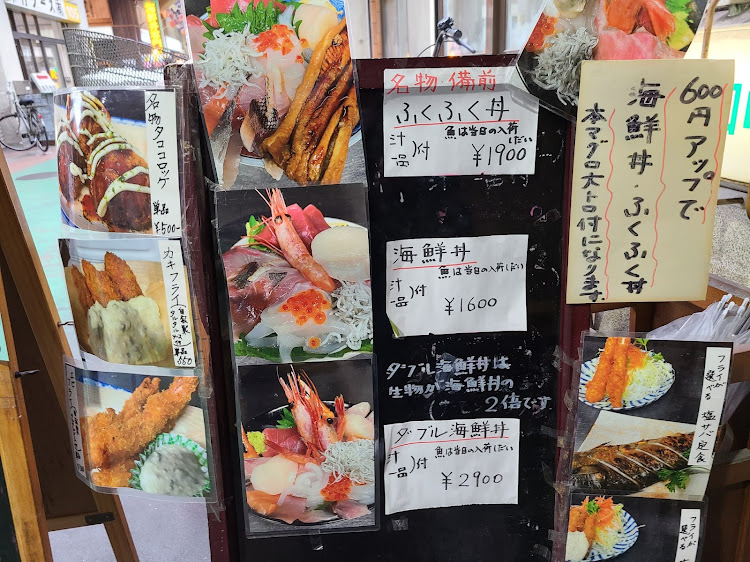 名物タココロッケ
単品
¥500-
カキフライ
自家製
タルタル
単品
660
名物 備前
ふくふく丼
魚は当日の入荷しだい
汁
一品)付
¥1900
海鮮丼
魚は当日の入荷しだい
汁
一品)付
¥1600
ダブル海鮮丼は
生物が海鮮丼の
2倍です
ダブル海鮮丼
魚は当日の入荷しだい
汁
一品)付
¥2900
600円アップで
海鮮丼・ふくふく丼
本マグロ大トロ付になります。
フライが
選べる
塩サバ定食
フライが
選べる